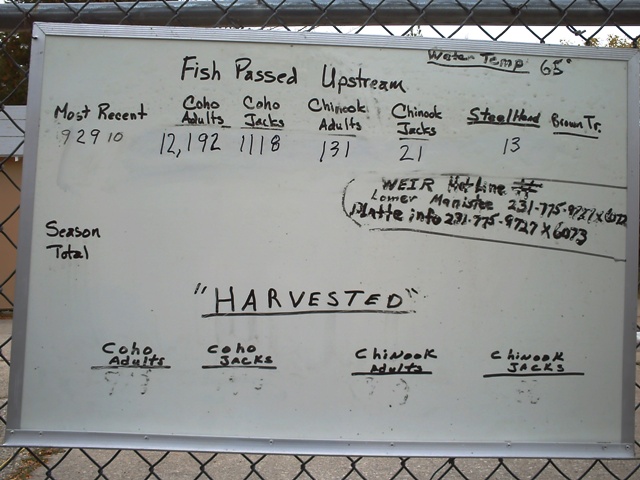 Water Temp 65°
Fish Passed Upstream
Most Recent Coho Adults Coho Jacks Chinook Adults Chinook Jacks Steelhead Brown Tr.
92910 12,192 1118 131 21 13
WEIR Hot Line #
Lower Manistee 231-775-9727 x 6072
Platte info 231-775-9727 x 6073
Season Total
"HARVESTED"
Coho Adults Coho JACKS Chinook Adults Chinook JACKS